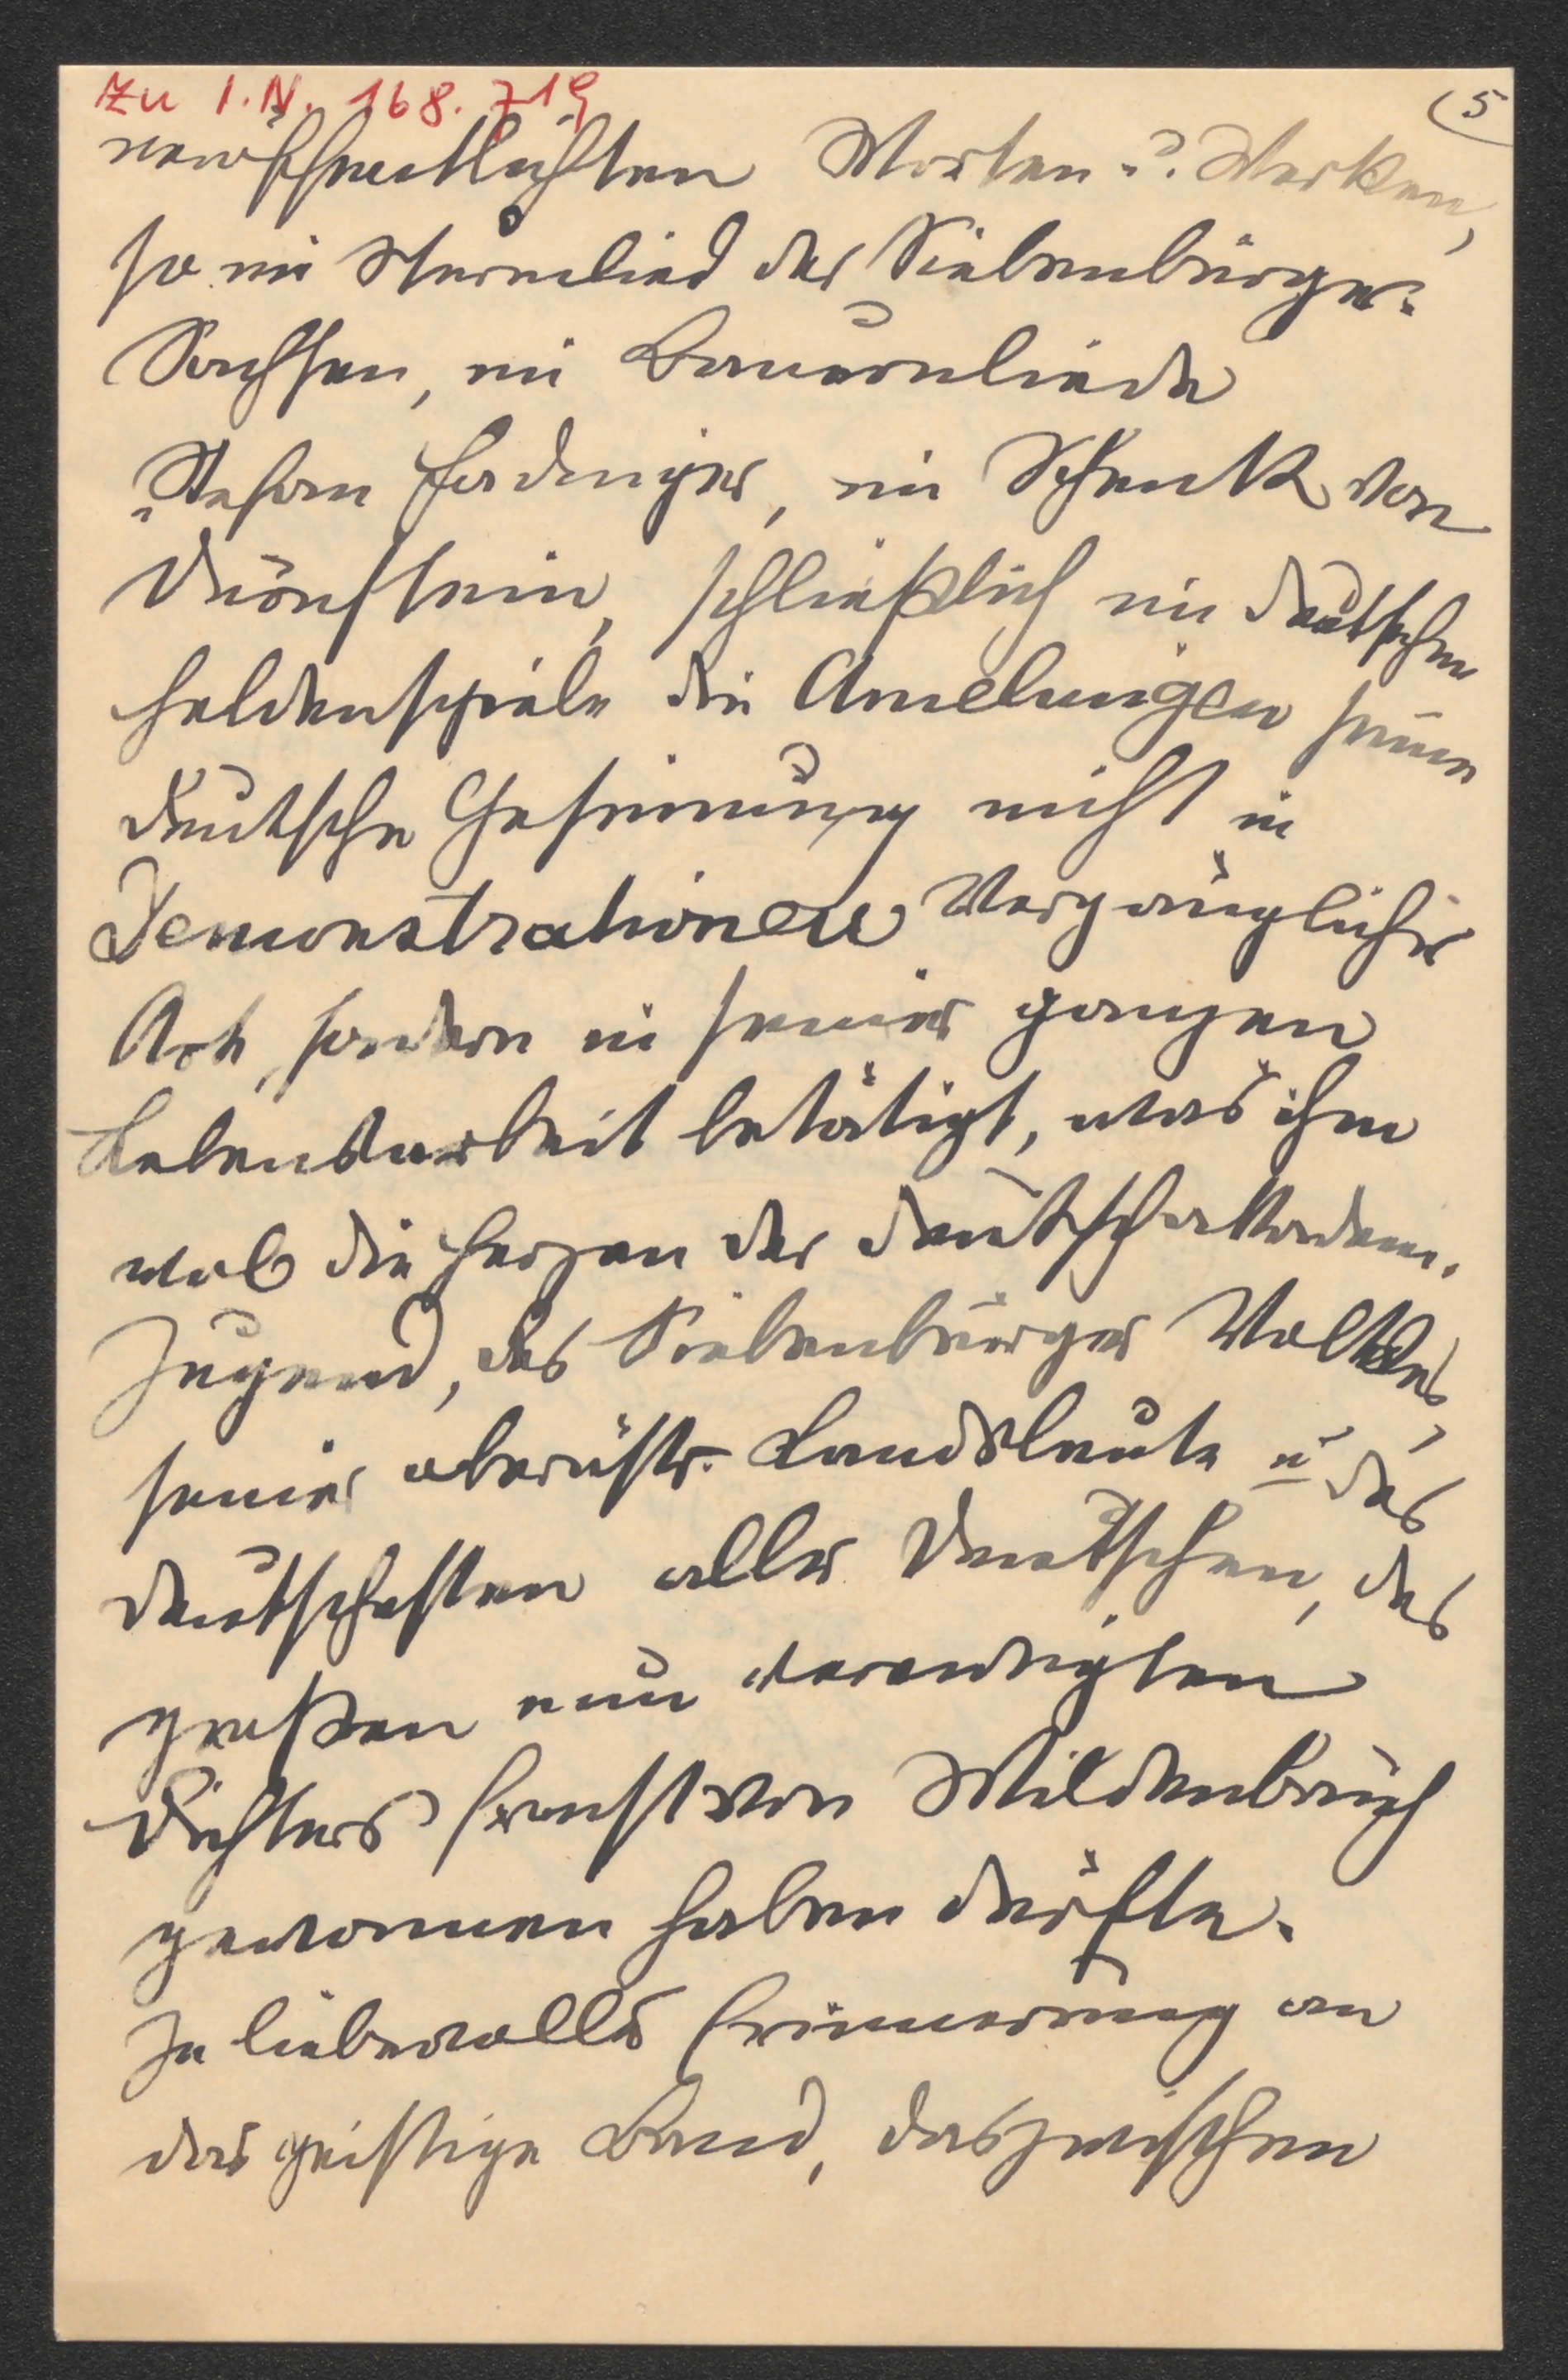 Zu I.N. 168.719
(5
veröffentlichten Worten u. Werken,
so im Sturmlied der Siebenbürger-
Sachsen, im Bauernliede
„Stefan Fadinger, im Schenk von
Dürnstein, schließlich im deutschen
Heldenspiele die Amelungen seine
deutsche Gesinnung nicht in
Demonstrationen vergänglicher
Art, sondern in seiner ganzen
Lebensarbeit betätigt, was ihm
wol die Herzen der deutschakadem.
Jugend, des Siebenbürger Volkes,
seiner oberöstr. Landsleute u des
deutschesten aller Deutschen, des
großen nun verewigten
Dichters Ernst von Wildenbruch
gewonnen haben dürfte.
In liebevoller Erinnerung an
das geistige Band, das zwischen